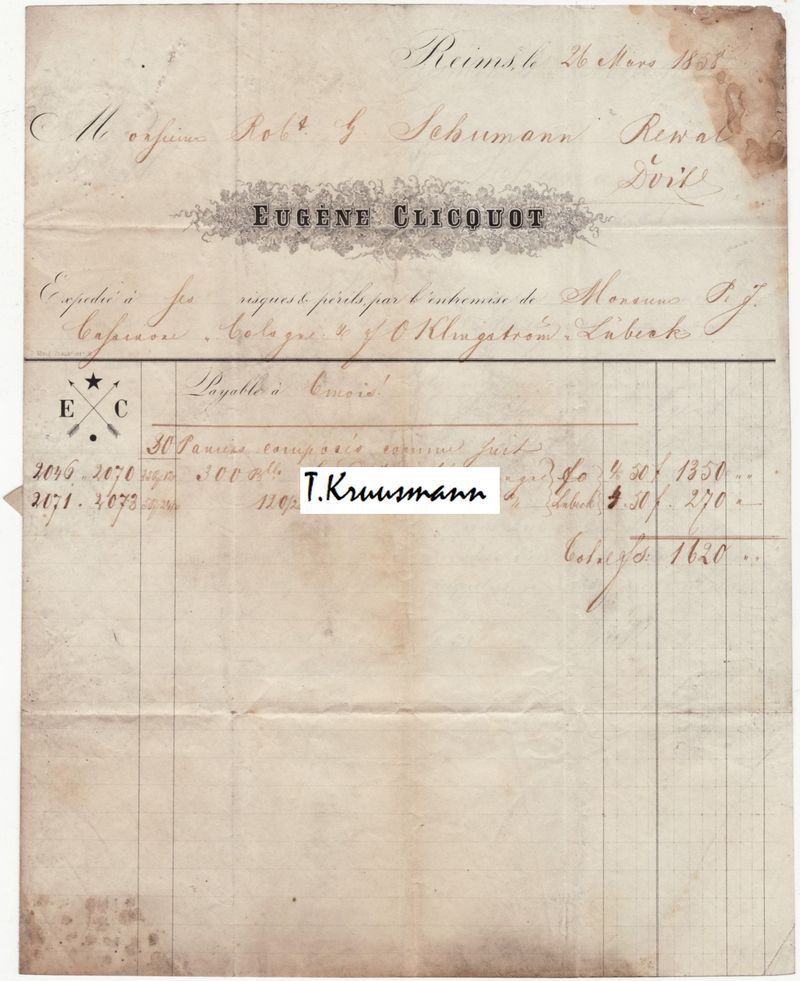 Reims, le 26 Mars 1858
Monsieur Robt. G. Schumann Reval
Doit
EUGÈNE CLICQUOT
Expedié à ses risques & périls, par l'entremise de Monsieur P. J.
Cologne & O Klingström Lübeck
E C
Payable à 6 mois
30 Paniers composés comme suit
2046 " 2070 300 Blles fo 4/50 f 1350 " "
2071 " 2073 120/2 Lübeck 4.50 f. 270 "
T.Kruusmann
1620 " "